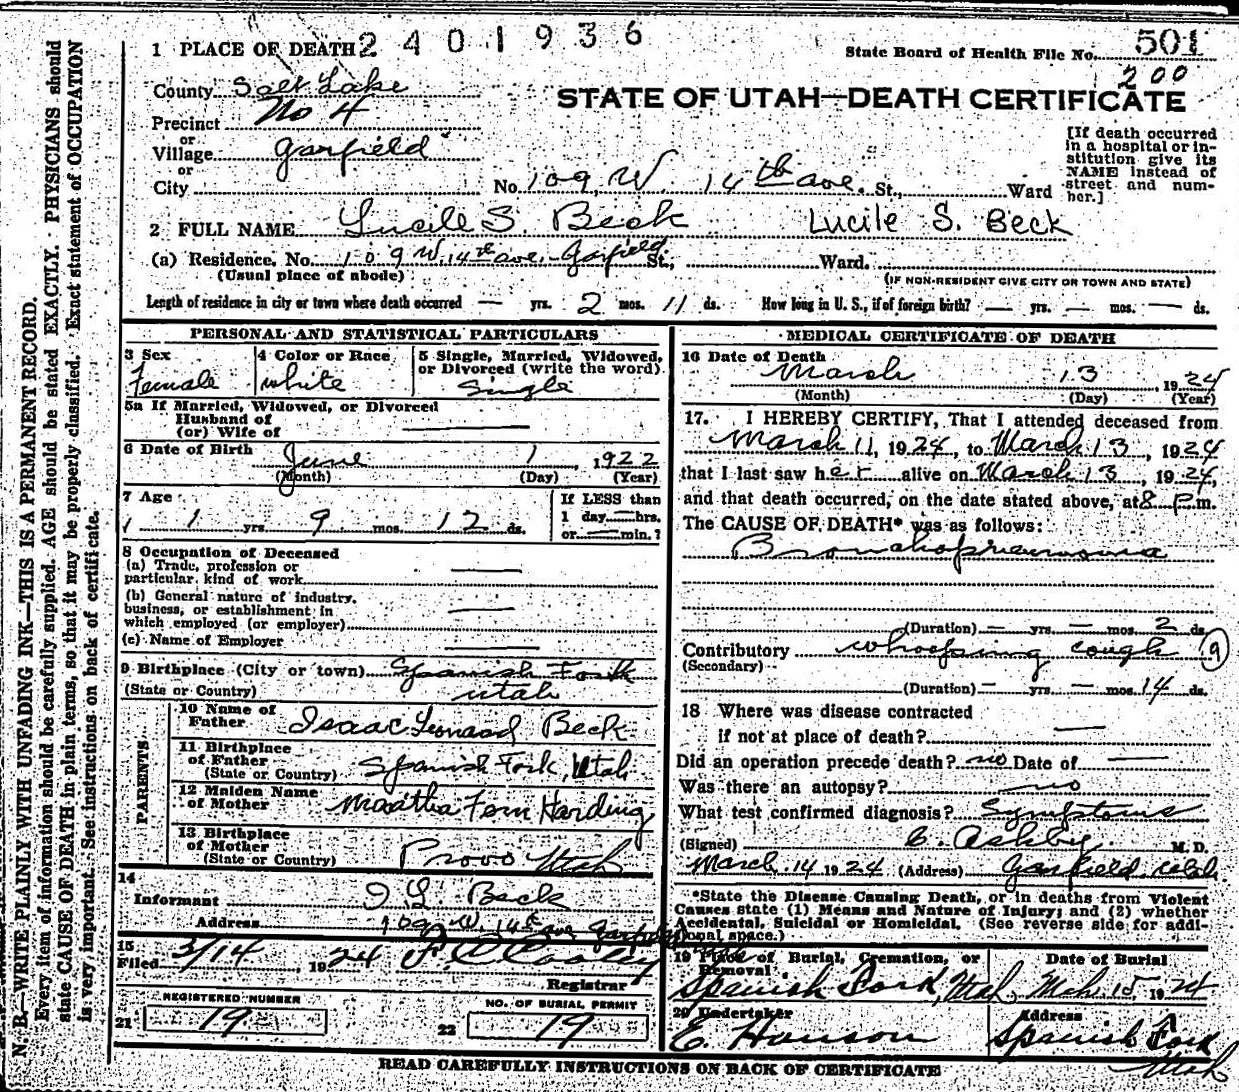 2401936
1 PLACE OF DEATH
State Board of Health File No. 501
200
County Salt Lake
STATE OF UTAH—DEATH CERTIFICATE
Precinct No 4
or
Village Garfield
or
City No. 109 W. 14th ave. St., Ward
[If death occurred
in a hospital or in-
stitution give its
NAME instead of
street and num-
ber.]
2 FULL NAME Lucile S. Beck Lucile S. Beck
(a) Residence. No. 109 W. 14th ave. Garfield St., Ward.
(Usual place of abode) (IF NON-RESIDENT GIVE CITY OR TOWN AND STATE)
Length of residence in city or town where death occurred — yrs. 2 mos. 11 ds. How long in U. S., if of foreign birth? — yrs. — mos. — ds.
PERSONAL AND STATISTICAL PARTICULARS
3 Sex 4 Color or Race 5 Single, Married, Widowed,
or Divorced (write the word)
Female white Single
5a If Married, Widowed, or Divorced
Husband of
(or) Wife of —
6 Date of Birth June 1, 1922
(Month) (Day) (Year)
7 Age If LESS than
1 yrs. 9 mos. 12 ds. 1 day — hrs.
or — min.?
8 Occupation of Deceased
(a) Trade, profession or
particular kind of work —
(b) General nature of industry,
business, or establishment in
which employed (or employer) —
(c) Name of Employer —
9 Birthplace (City or town) Spanish Fork
(State or Country) Utah
PARENTS
10 Name of
Father Isaac Leonard Beck
11 Birthplace
of Father Spanish Fork, Utah
(State or Country)
12 Maiden Name
of Mother Martha Fern Harding
13 Birthplace
of Mother Provo Utah
(State or Country)
14
Informant I L Beck
Address 109 W. 14th ave Garfield
15
Filed 3/14, 1924
Registrar
REGISTERED NUMBER NO. OF BURIAL PERMIT
21 19 22 19
MEDICAL CERTIFICATE OF DEATH
16 Date of Death
March 13, 1924
(Month) (Day) (Year)
17. I HEREBY CERTIFY, That I attended deceased from
March 11, 1924, to March 13, 1924
that I last saw her alive on March 13, 1924,
and that death occurred, on the date stated above, at 8 P.m.
The CAUSE OF DEATH* was as follows:
Bronchopneumonia
(Duration) — yrs. — mos. 2 ds.
Contributory whooping cough 9
(Secondary)
(Duration) — yrs. — mos. 14 ds.
18 Where was disease contracted
if not at place of death? —
Did an operation precede death? no Date of —
Was there an autopsy? no
What test confirmed diagnosis? Symptoms
(Signed) C. Ashby M. D.
March 14 1924 (Address) Garfield Utah
*State the Disease Causing Death, or in deaths from Violent
Causes state (1) Means and Nature of Injury; and (2) whether
Accidental, Suicidal or Homicidal. (See reverse side for addi-
tional space.)
19 Place of Burial, Cremation, or Date of Burial
Removal
Spanish Fork, Utah, Mch. 15 1924
20 Undertaker Address
E. Hanson Spanish Fork
Utah
READ CAREFULLY INSTRUCTIONS ON BACK OF CERTIFICATE
N. B.—WRITE PLAINLY WITH UNFADING INK—THIS IS A PERMANENT RECORD.
Every item of information should be carefully supplied. AGE should be stated EXACTLY. PHYSICIANS should
state CAUSE OF DEATH in plain terms, so that it may be properly classified. Exact statement of OCCUPATION
is very important. See instructions on back of certificate.